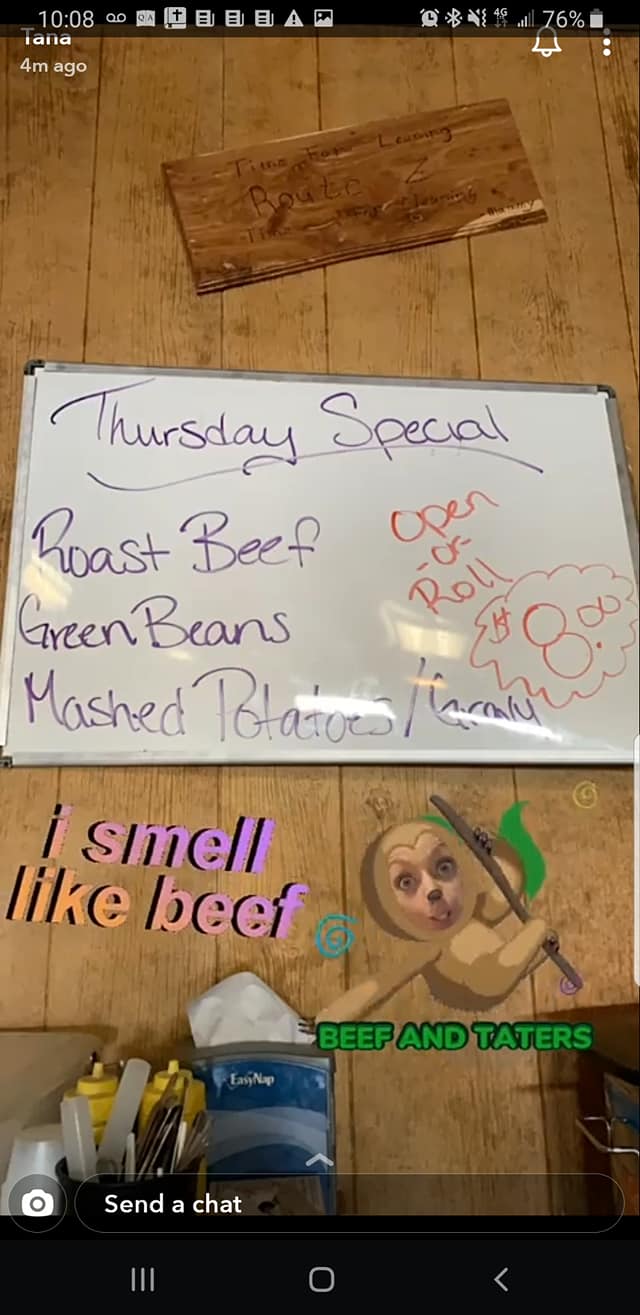 10:08
4G
76%
Tana
4m ago
Time For Learning
Route 2
Thursday Special
Roast Beef
Green Beans
Mashed Potatoes/Gravy
Open
-or-
Roll
$8.00
i smell
like beef
BEEF AND TATERS
EasyNap
Send a chat